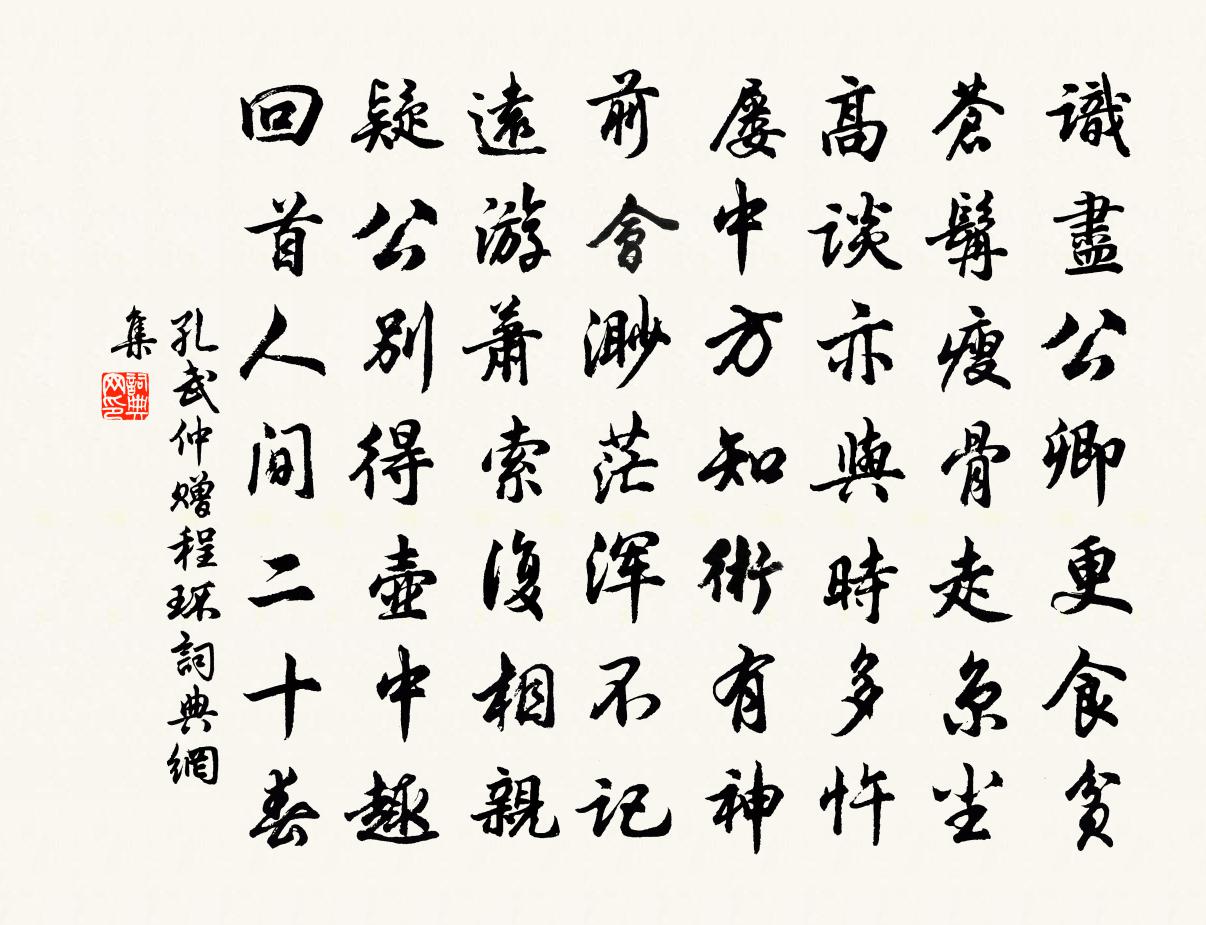 識盡公卿更食貧
蒼髯瘦骨走京尘
高談亦與時多忤
屡中方知術有神
前會渺茫浑不记
遠游蕭索復相親
疑公别得壺中趣
回首人间二十春
孔武仲赠程琢詞典網
集
詞典网印